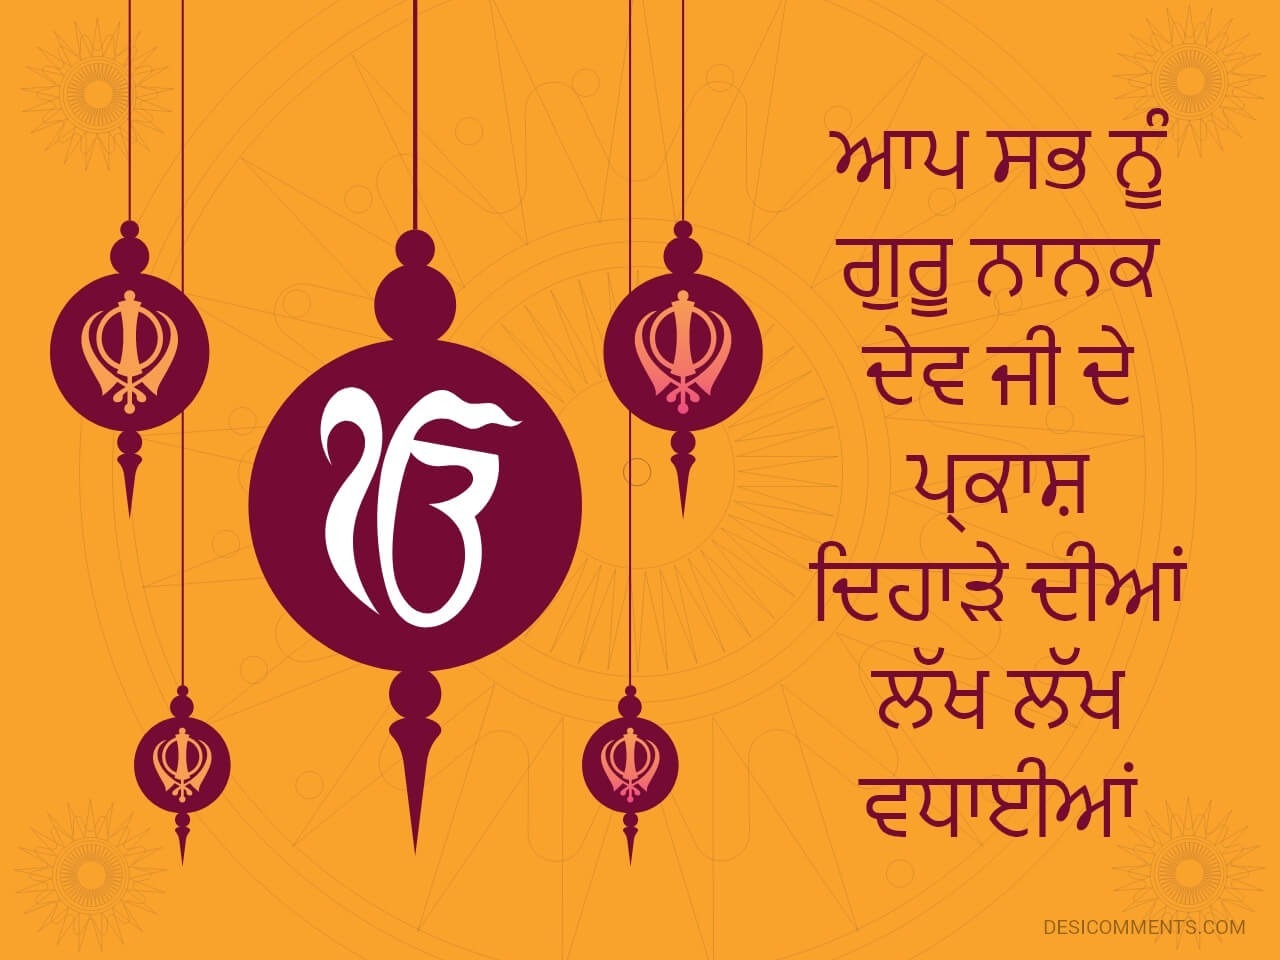 ਆਪ ਸਭ ਨੂੰ
ਗੁਰੂ ਨਾਨਕ
ਦੇਵ ਜੀ ਦੇ
ਪ੍ਰਕਾਸ਼
ਦਿਹਾੜੇ ਦੀਆਂ
ਲੱਖ ਲੱਖ
ਵਧਾਈਆਂ
ੴ
DESICOMMENTS.COM